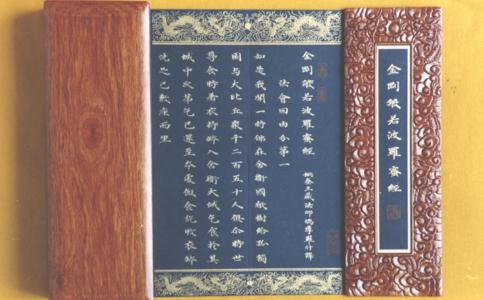 金剛般若波羅蜜經
金剛般若波羅蜜經
姚秦三藏法師鳩摩羅什譯
法會因由分第一
如是我聞一時佛在舍衛國祇樹給孤獨
園與大比丘眾千二百五十人俱尒時世
尊食時著衣持鉢入舍衛大城乞食於其
城中次第乞已還至本處飯食訖收衣鉢
洗足已敷座而坐